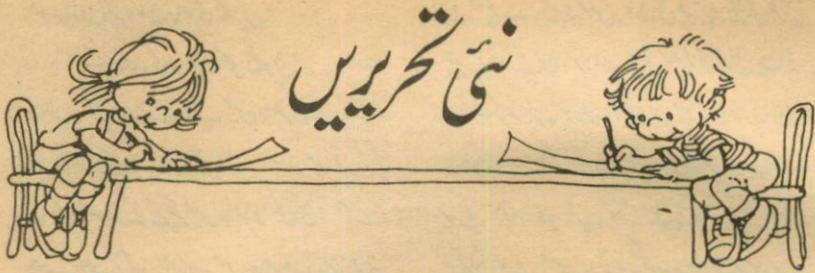 نئی تحریریں